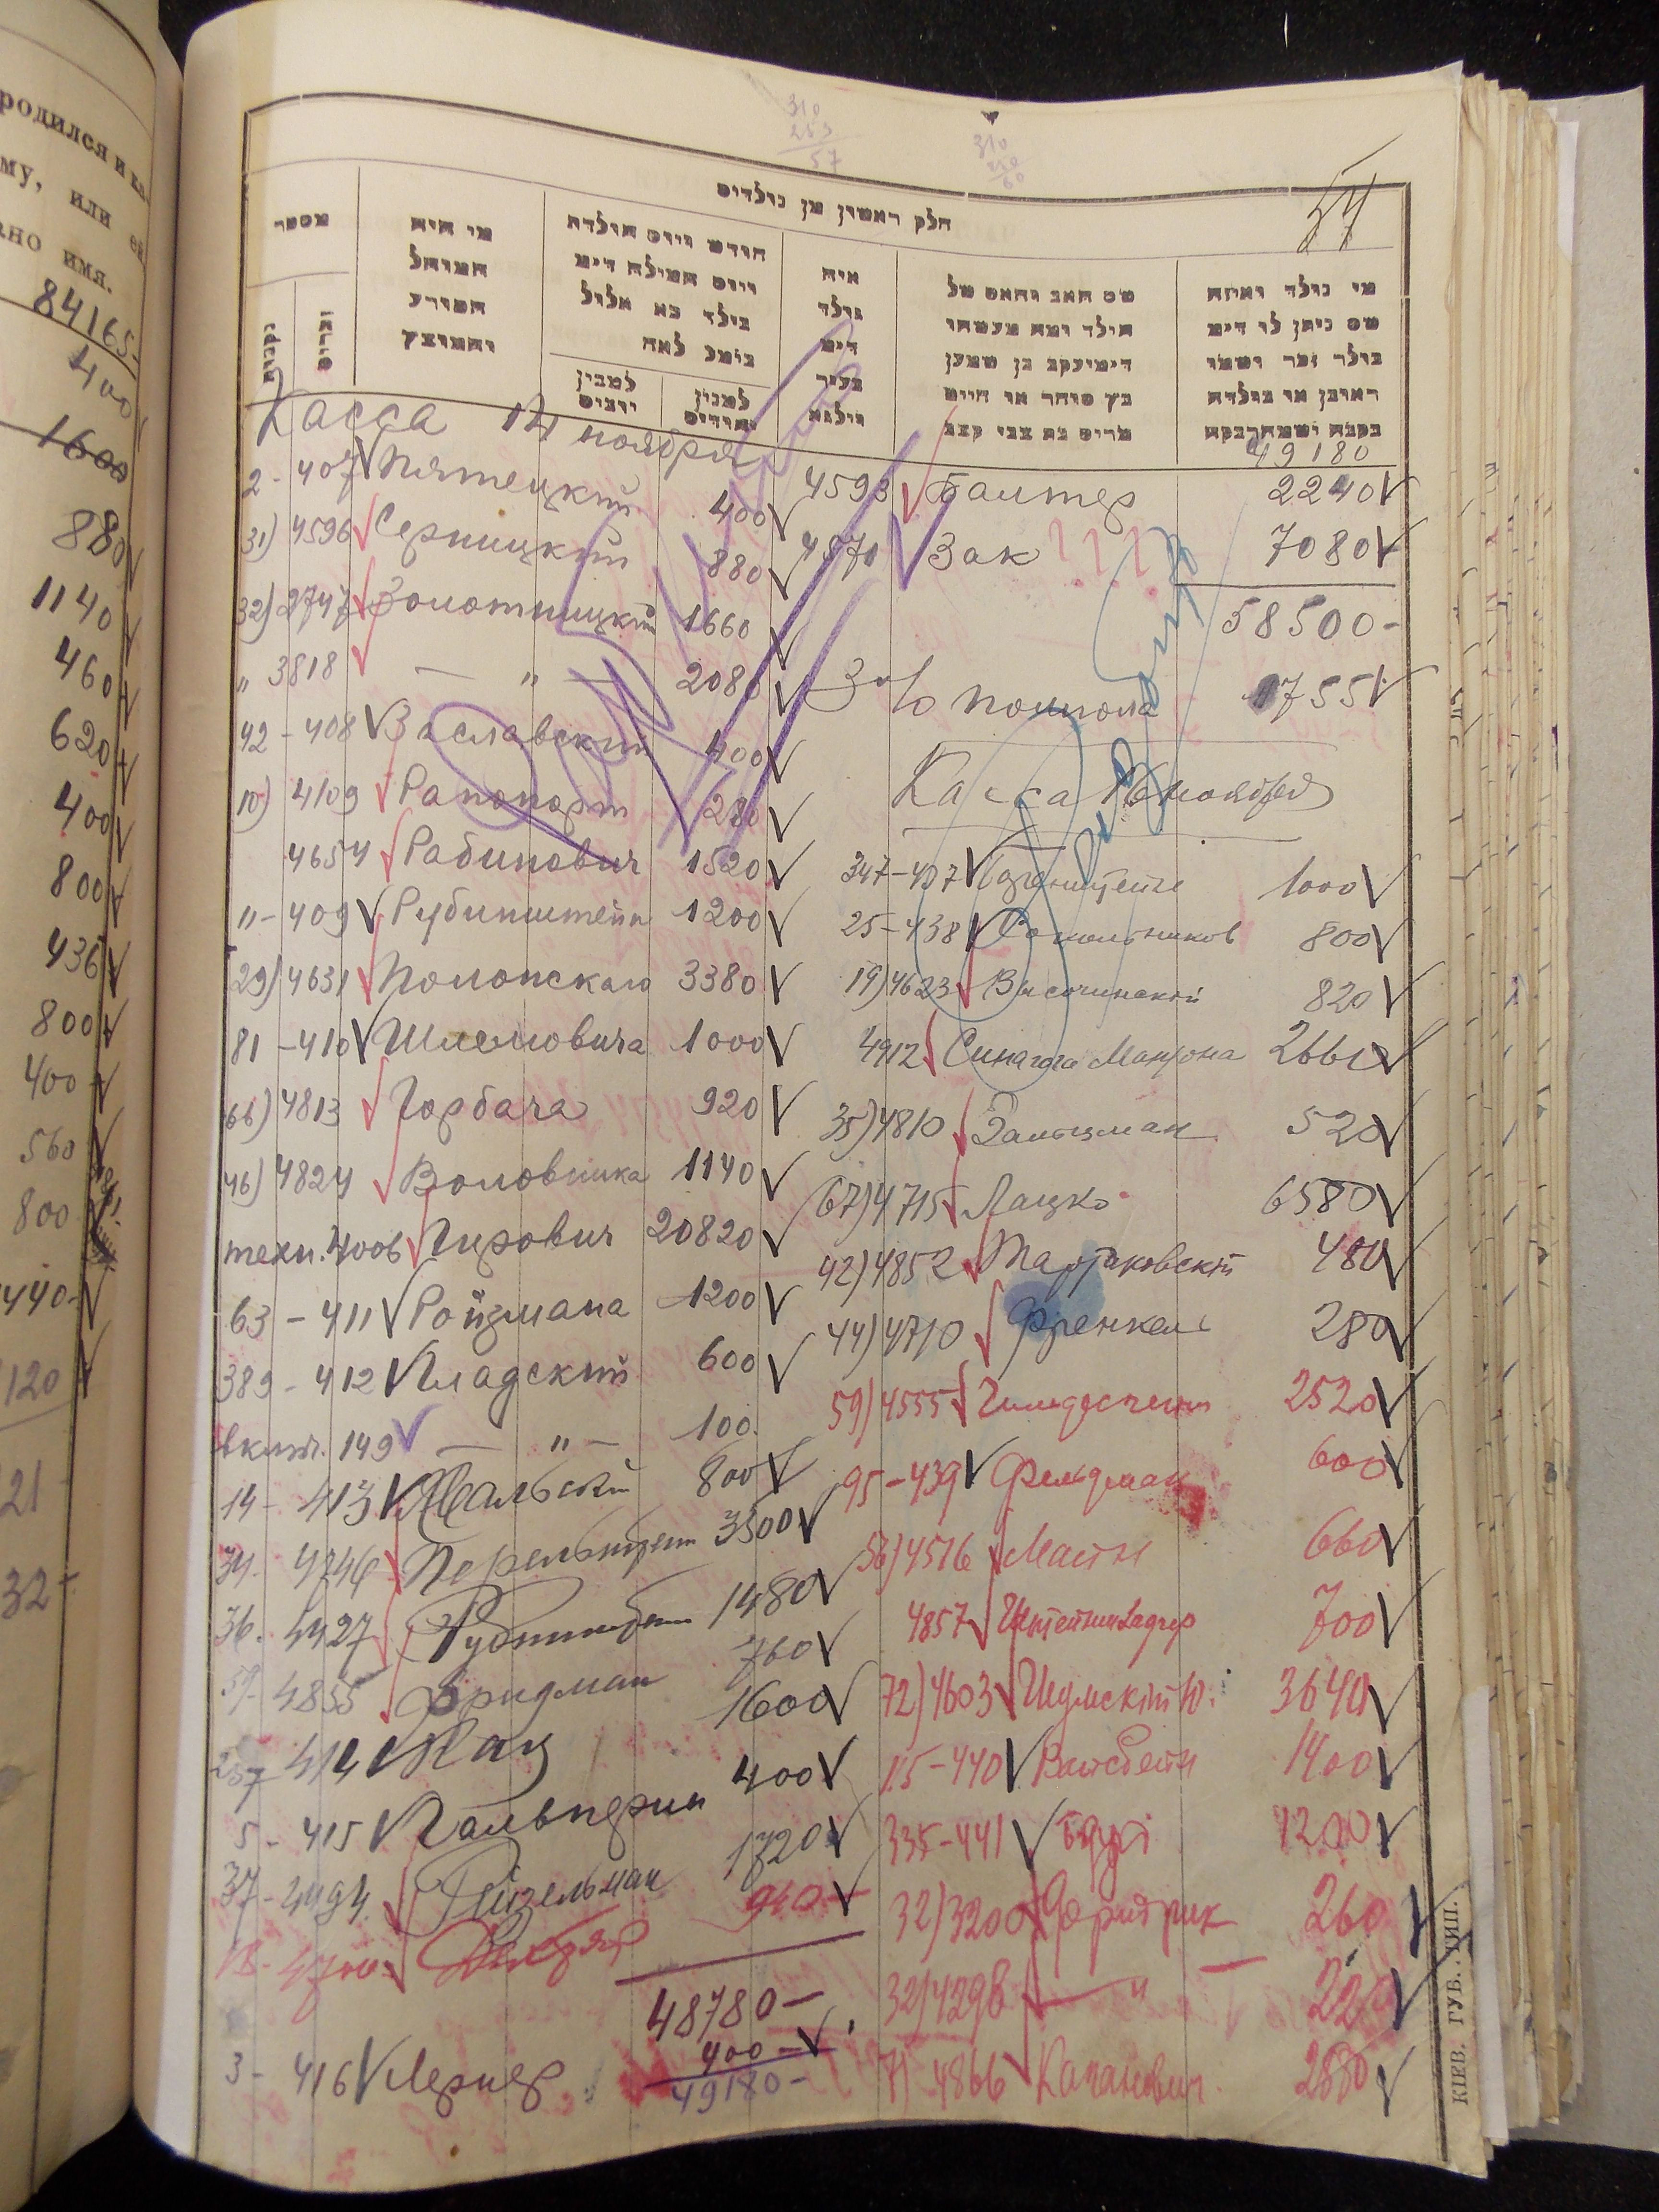 родился и ка
му, или ей
ано имя.
84165-
400
1600
880
1140
460
620
400
800
436
800
400
560
800
440-
120
21
32-
310
253
57
310
250
60
54
חלק ראשון מן נולדים
מספר
נקבות
זכרים
מי היה
המוהל
הפורע
והמוצץ
חודש ויום הולדת
ויום המילה דימ
נולד בא אלול
בומכ לאח
למנין
יוונים
למנין
יהודים
איה
נולד
דימ
בעיר
ווילנא
שם האב והאם של
הילד ומה מעשהו
דימיעקב בן שמעון
כץ סוחר או חייט
מרים בת צבי קצב
מי נולד ואיזה
שם ניתן לו דימ
נולד זכר ושמו
ראובן או נולדה
נקבה ושמה רבקה
Касса 14 ноября
2 - 407 Пятецкий 400
31) 4596 Серпицкий 880
32) 2747 Золотницкий 1660
" 3818 — " — 2080
42 - 408 Заславский 400
10) 4109 Рапопорт 280
4654 Рабинович 1520
11 - 409 Рубинштейн 1200
29) 4631 Полонскаго 3380
81 - 410 Шлемовича 1000
66) 4813 Горбача 920
46) 4824 Воловника 1140
техн. 4006 Гирович 20820
63 - 411 Ройзмана 1200
389 - 412 Гладский 600
включ. 149 — " — 100
14 - 413 Жальский 800
34. 4746 Перельштейн 3500
36. 4427 Рубинштейн 1480
59 - 4855 Фридман 760
257 414 Кац 1600
5 - 415 Гальперин 400
37 - 4494 Гизельман 1720
18 - 4700 940
48780 -
3 - 416 Лернер 400 -
49180 -
49180
4593 Балтер 2240
4970 Зак ? ? ? 7080
58500 -
3% 1755
Касса 16 ноября
347 - 437 1000
25 - 438 Сокольников 800
19) 4623 Височинский 820
4912 Синагога 2660
35) 4810 Зальцман 520
67) 4715 Лацко 6580
42) 4852 Тартаковский 480
44) 4710 Френкель 280
59) 4555 2520
95 - 439 Фельдман 600
56) 4516 660
4857 700
72) 4603 Шумский Ю. 3640
15 - 440 Вайсбейн 1400
335 - 441 1200
32) 3200 260
32) 4298 — " — 220
71 4866 Капанович 2880
КІЕВ. ГУБ. ТИП.